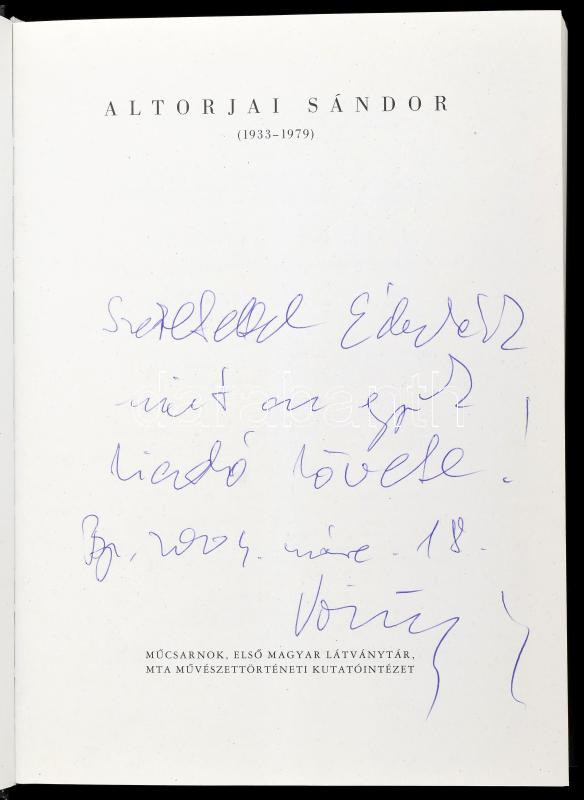 ALTORJAI SÁNDOR
(1933–1979)
Szeretettel
mint az egyik
kiadó követe!
Bp, 2004. márc. 18.
darabanth
MŰCSARNOK, ELSŐ MAGYAR LÁTVÁNYTÁR,
MTA MŰVÉSZETTÖRTÉNETI KUTATÓINTÉZET